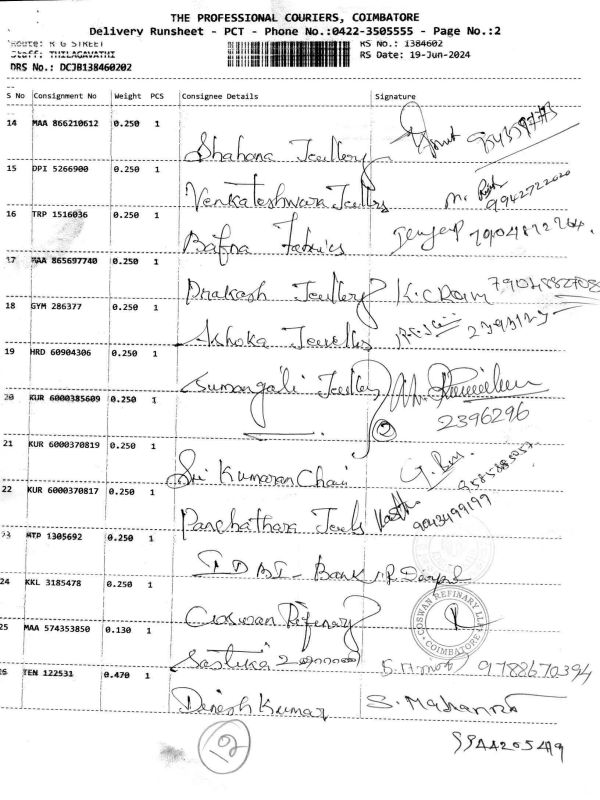 THE PROFESSIONAL COURIERS, COIMBATORE
Delivery Runsheet - PCT - Phone No.:0422-3505555 - Page No.:2
Route: R G STREET RS No.: 1384602
Staff: THILAGAVATHI RS Date: 19-Jun-2024
DRS No.: DCJB138460202
S No Consignment No Weight PCS Consignee Details Signature
14 MAA 866210612 0.250 1
Shahana Jewllery
15 DPI 5266900 0.250 1
Venkateshwara Jewllers Mr 9942722020
16 TRP 1516036 0.250 1
Bafna Fabrics
17 MAA 865697740 0.250 1
Prakash Jewllery K.C Ram
18 GYM 286377 0.250 1
Ashoka Jewellers
19 HRD 60904306 0.250 1
Sumangali Jewllery
20 KUR 6000385609 0.250 1
2396296
21 KUR 6000370819 0.250 1
Sri Kumaran Chain
22 KUR 6000370817 0.250 1
Panchathara Jewels 9043499199
23 MTP 1305692 0.250 1
IDBI - Bank
24 KKL 3185478 0.250 1
Coswan Refinary
COSWAN REFINARY LLP
COIMBATORE
25 MAA 574353850 0.130 1
Sastika 9788670394
26 TEN 122531 0.470 1
Dinesh Kumar